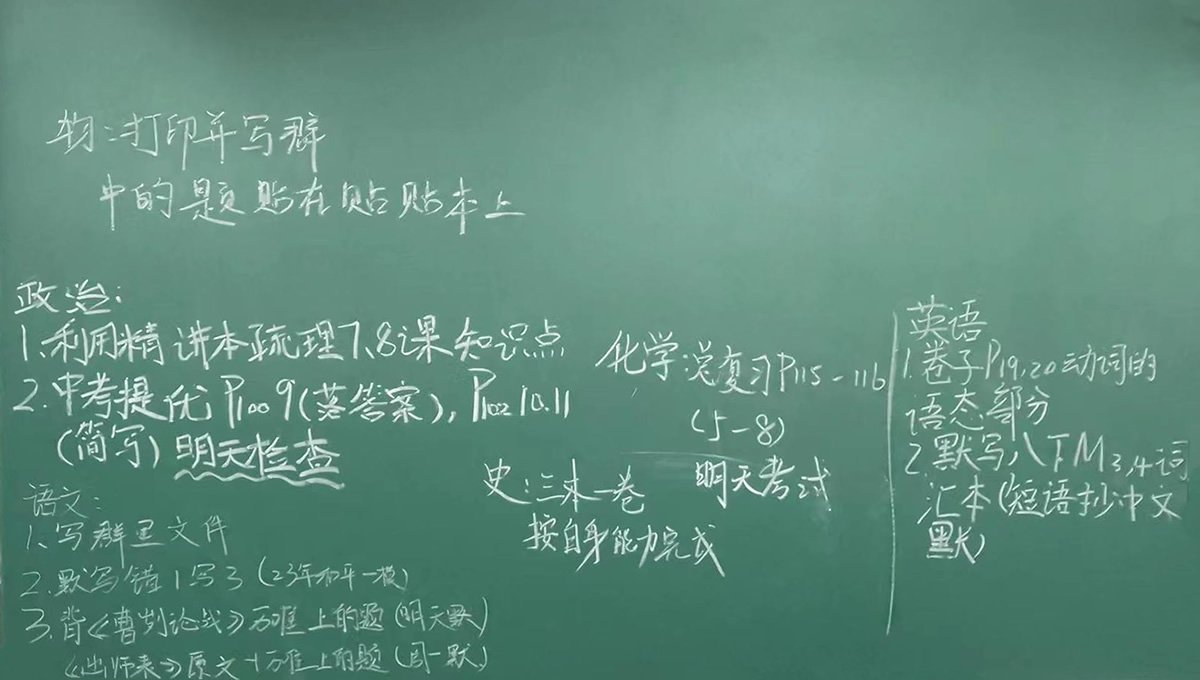 物:打印并写群
中的题贴在贴贴本上
政治:
1.利用精讲本疏理7、8课知识点
2.中考提优P100 9(落答案),P102 10.11
(简写)明天检查
语文:
1.写群里文件
2.默写错1写3(23年和平一模)
3.背《曹刿论战》万唯上的题(明天默)
《出师表》原文+万唯上的题(周一默)
化学:总复习P115-116
(5-8)
明天考试
史:三本一卷
按自身能力完成
英语
1.卷子P19,20动词的
语态部分
2.默写八下M3,4词
汇本(短语抄中文
默)